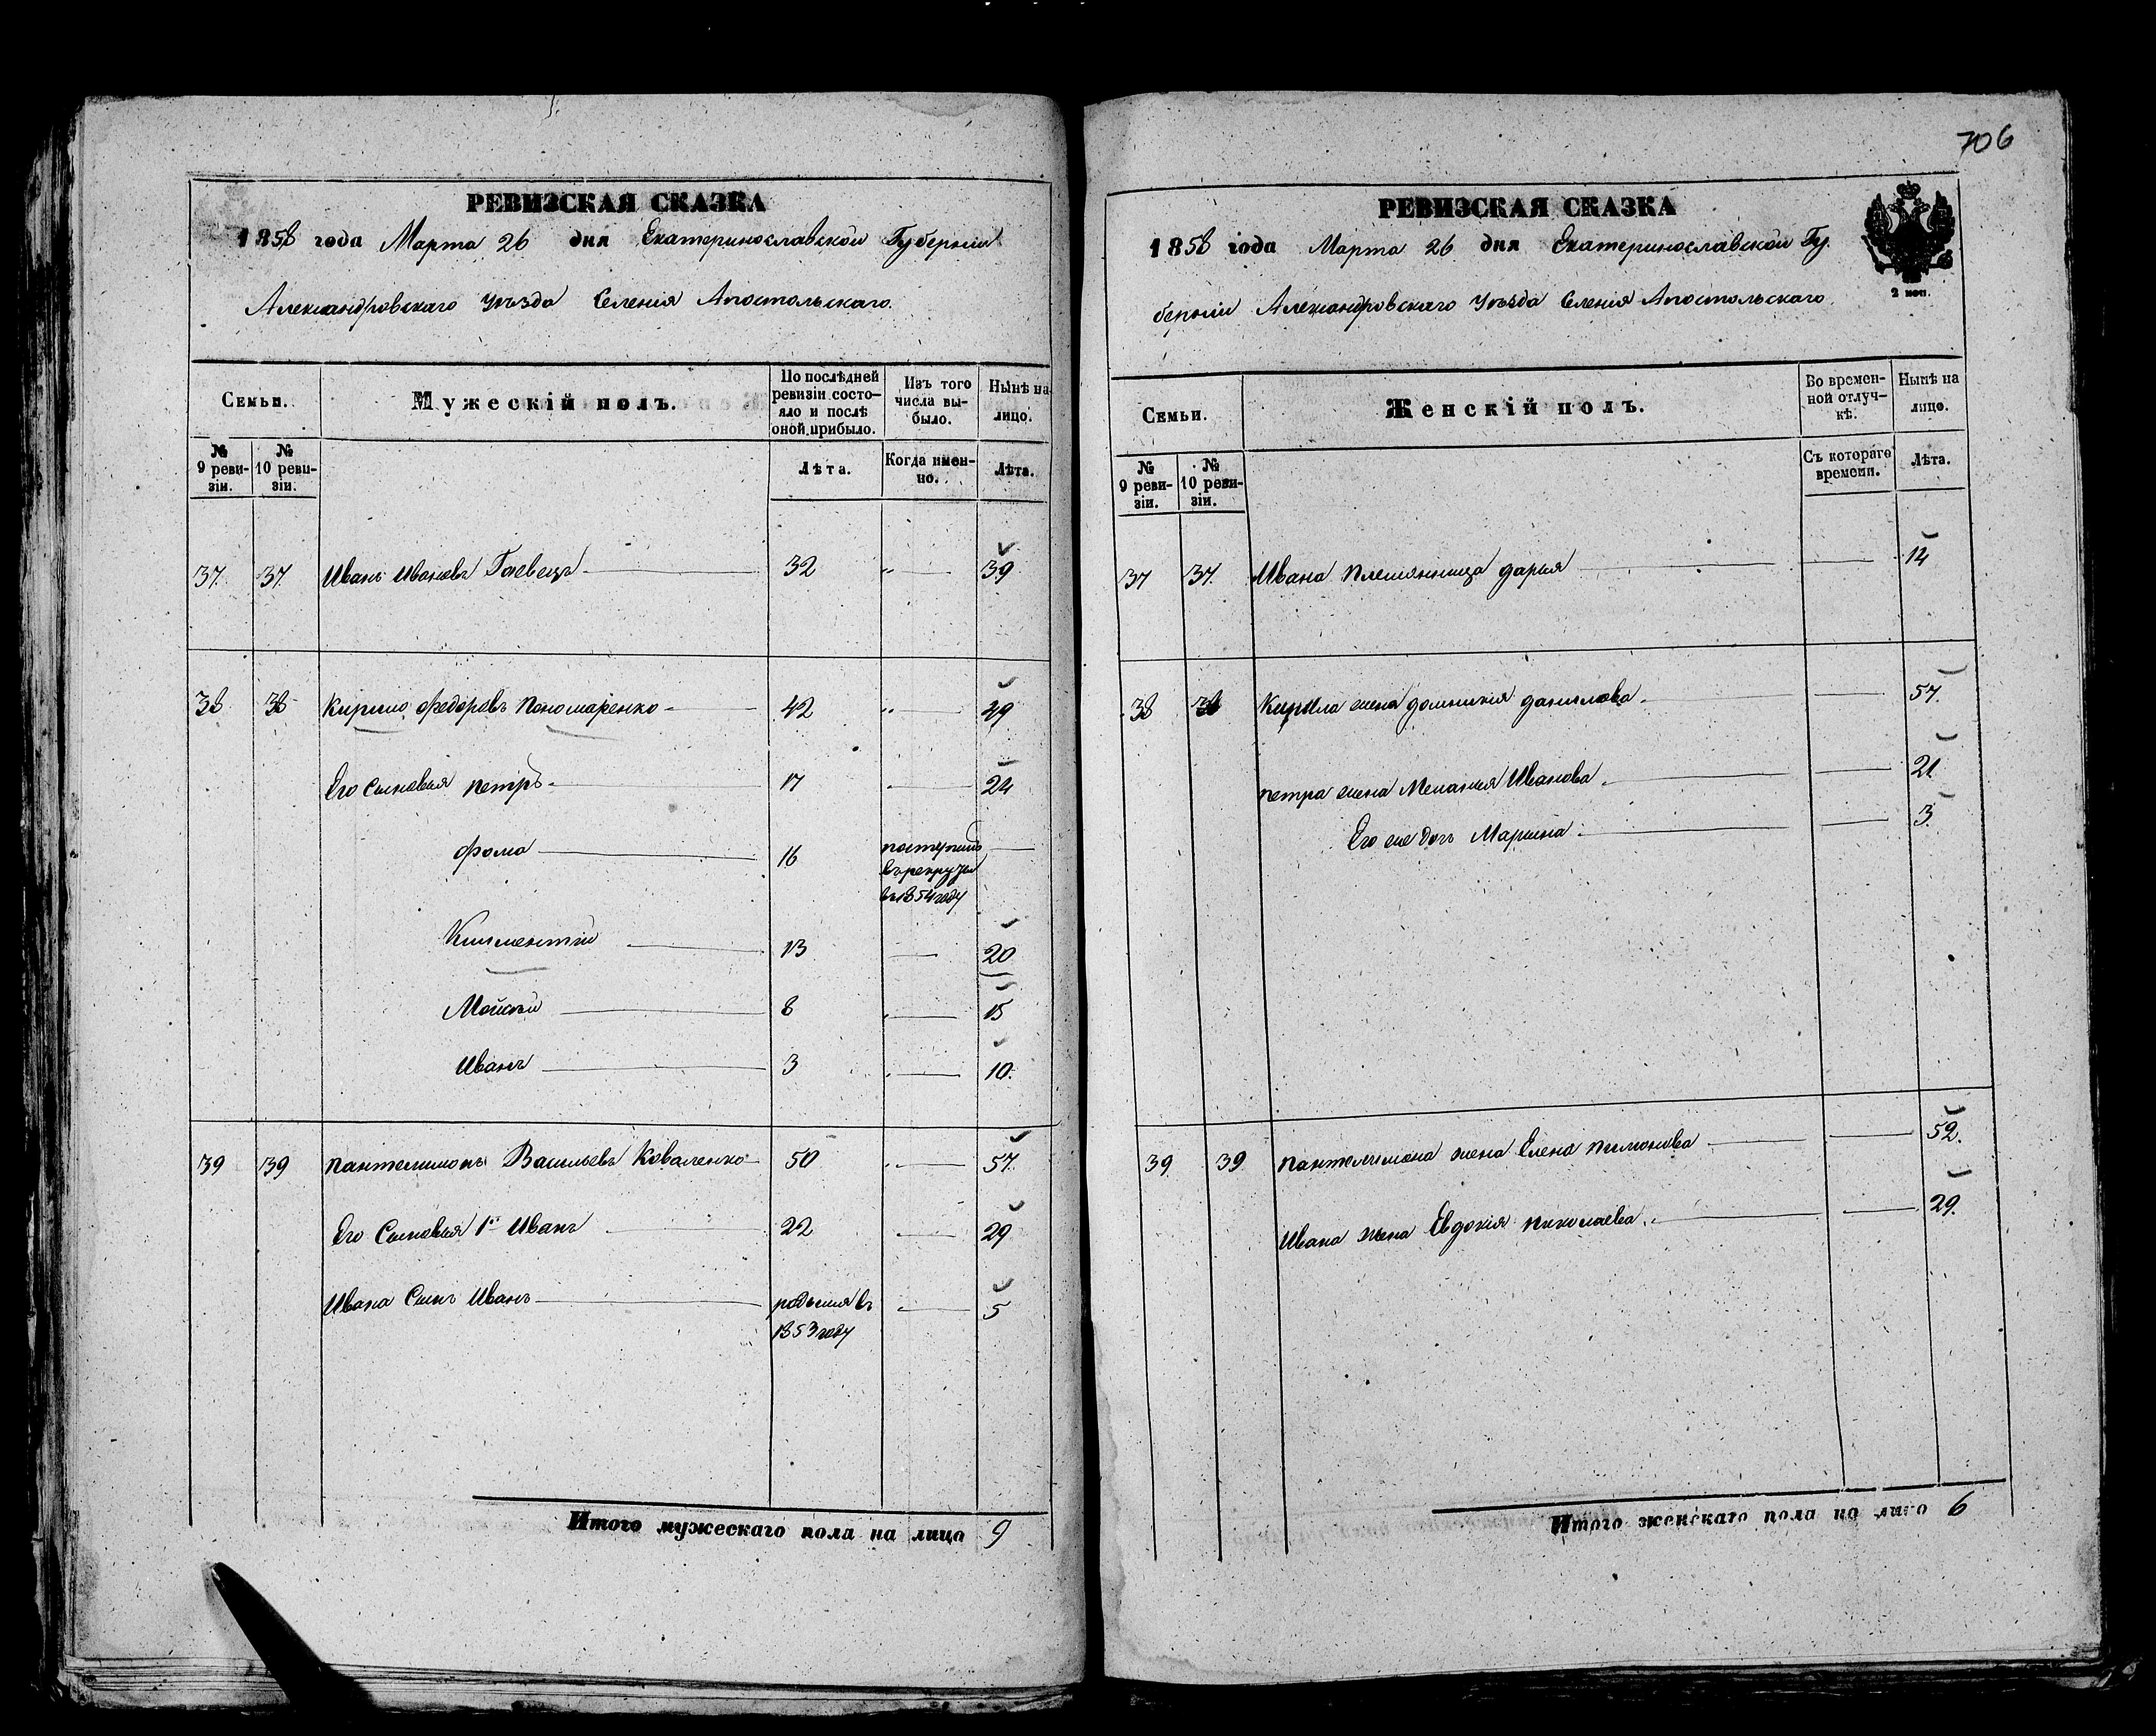 РЕВИЗСКАЯ СКАЗКА
1858 года Марта 26 дня Екатеринославской Губерніи
Александровскаго Уѣзда Селенія Апостольскаго.
Семьи.
Мужескій полъ.
По послѣдней ревизіи состояло и послѣ оной прибыло.
Изъ того числа выбыло.
Нынѣ на лицо.
№ 9 ревизіи.
№ 10 ревизіи.
Лѣта.
Когда именно.
Лѣта.
37 37 Иванъ Ивановъ Гаевецъ 32 „ 39
38 38 Кирило Федоровъ Пономаренко 42 „ 49
Его Сыновья Петръ 17 24
Фома 16 поступилъ
въ рекруты
въ 1854 году
Климентій 13 20
Мойсей 8 15
Иванъ 3 10.
39 39 Пантелимонъ Васильевъ Коваленко 50 57.
Его Сыновья 1й Иванъ 22 29
Ивана Сынъ Иванъ родился въ 5
1853 году
Итого мужескаго пола на лицо 9
706
РЕВИЗСКАЯ СКАЗКА
1858 года Марта 26 дня Екатеринославской Гу
берніи Александровскаго Уѣзда Селенія Апостольскаго
2 коп.
Семьи.
Женскій полъ.
Во временной отлучкѣ.
Нынѣ на лицо.
№ 9 ревизіи.
№ 10 ревизіи.
Съ котораго времени.
Лѣта.
37 37 Ивана племянница дарья
38 38 Кирила жена домникія данилова 57.
Петра жена Меланья Иванова 21
Его же дочь Марина 3.
39 39 Пантелимона жена Елена 52.
Ивана жена Евдокія Николаева. 29.
Итого женскаго пола на лицо 6